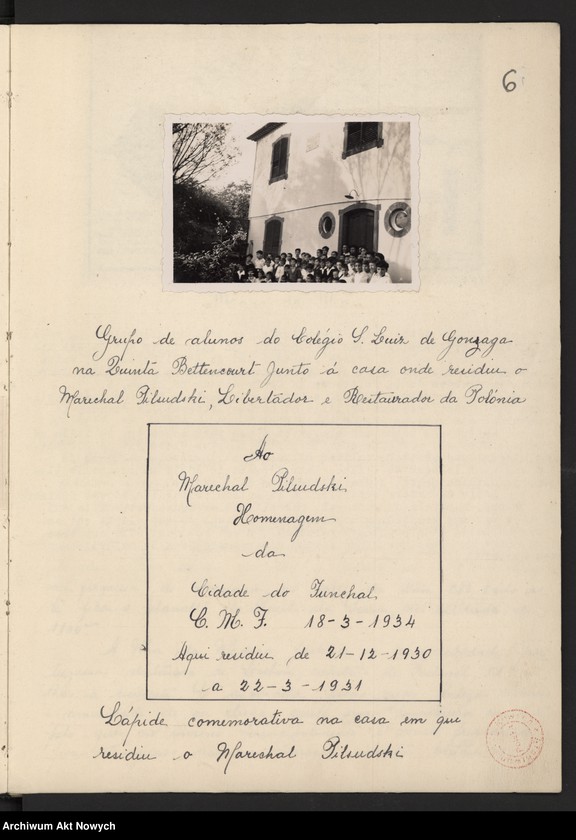 6
Grupo de alunos do Colégio S. Luiz de Gonzaga
na Quinta Bettencourt junto á casa onde residiu o
Marechal Pilsudski, Libertador e Restaurador da Polónia
Ao
Marechal Pilsudski
Homenagem
da
Cidade do Funchal
C. M. F. 18-3-1934
Aqui residiu de 21-12-1930
a 22-3-1931
Lápide comemorativa na casa em que
residiu o Marechal Pilsudski
Archiwum Akt Nowych